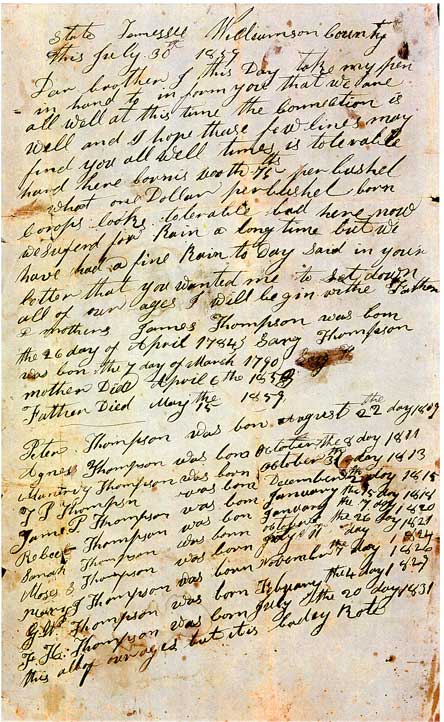 State Tennessee Williamson County
this July 30th 1859
Dear brother I this Day take my pen
in hand to inform you that we are
all well at this time the Connection is
well and I hope these few lines may
find you all well times is tolerable
hard here corn is worth 75 cts per bushel
what one Dollar per bushel corn
Corops looks tolerable bad here now
we suferd for Rain a long time but we
have had a fine Rain to Day said in your
letter that you wanted me to set down
all of our ages I will begin withe Father
& mothers James Thompson was born
the 26 day of April 1784 Thompson
was born the 7 day of March 1790
mother Died April 6 the
Father Died May the 15 1859
Peter Thompson was born August the 22 day 1809
Agnes Thompson was born October the 8 day 1811
Thompson was born October the day 1813
T P Thompson was born December day 1815
James P Thompson was born January the 5 day 1818
Rebeca Thompson was born January the 7 day 1820
Sarah Thompson was born October the 26 day 1821
Moses S Thompson was born July 11 day 1824
Mary J Thompson was born November 7 day 1826
G W Thompson was born February the 4 day 1829
F H Thompson was born July the 20 day 1831
this all of our ages but it is badey Rote